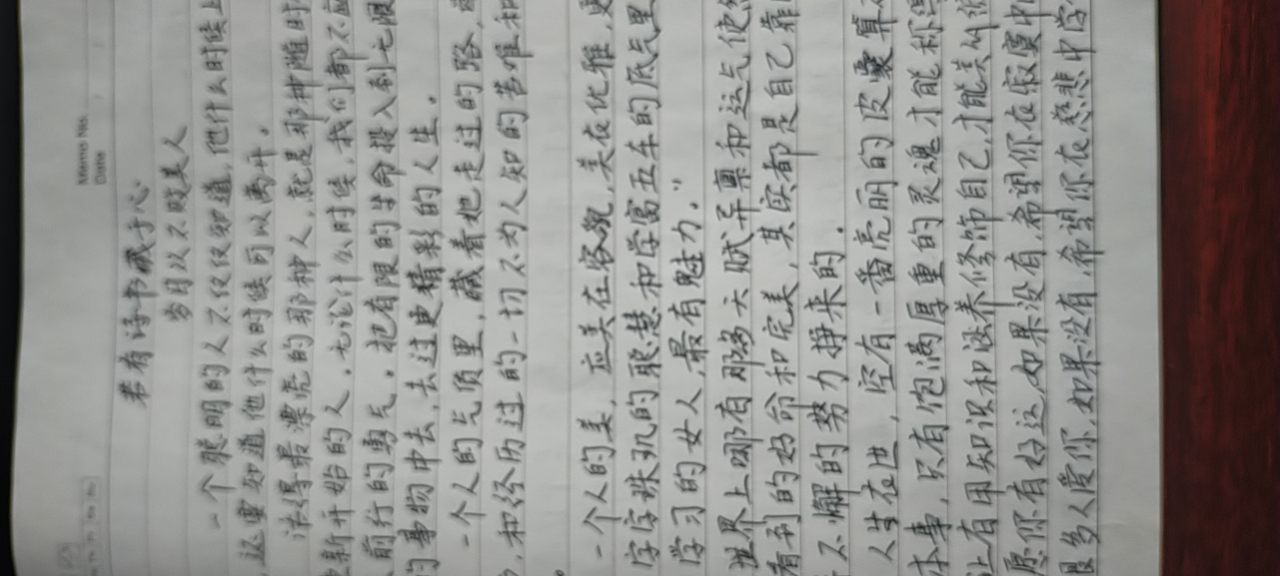 Memo No.
Date
若有诗书藏于心
岁月从不败美人
一个聪明的人不仅仅知道,他什么时候上
,还要知道他什么时候可以离开。
活得最漂亮的那种人,就是那种随时
新开始的人。无论什么时候,我们都不应
前行的勇气。把有限的生命投入到无限
的事物中去,去过更精彩的人生。
一个人的气质里,藏着她走过的路,
,和经历过的一切不为人知的苦难和
一个人的美,应美在容貌,美在优雅,更
字字珠玑的聪慧和学富五车的底气里
学习的女人,最有魅力。"
世界上哪有那多天赋异禀和运气使然
有到的好命和完美,其实都是自己靠
不懈的努力挣来的.
人生在世,空有一番亮丽的皮囊算
本事,只有饱满厚重的灵魂才能称
上有用知识和涵养修饰自己,才能从
愿你有好运,如果没有,希望你在寂寞中
很多人爱你,如果没有,希望你在慈悲中学